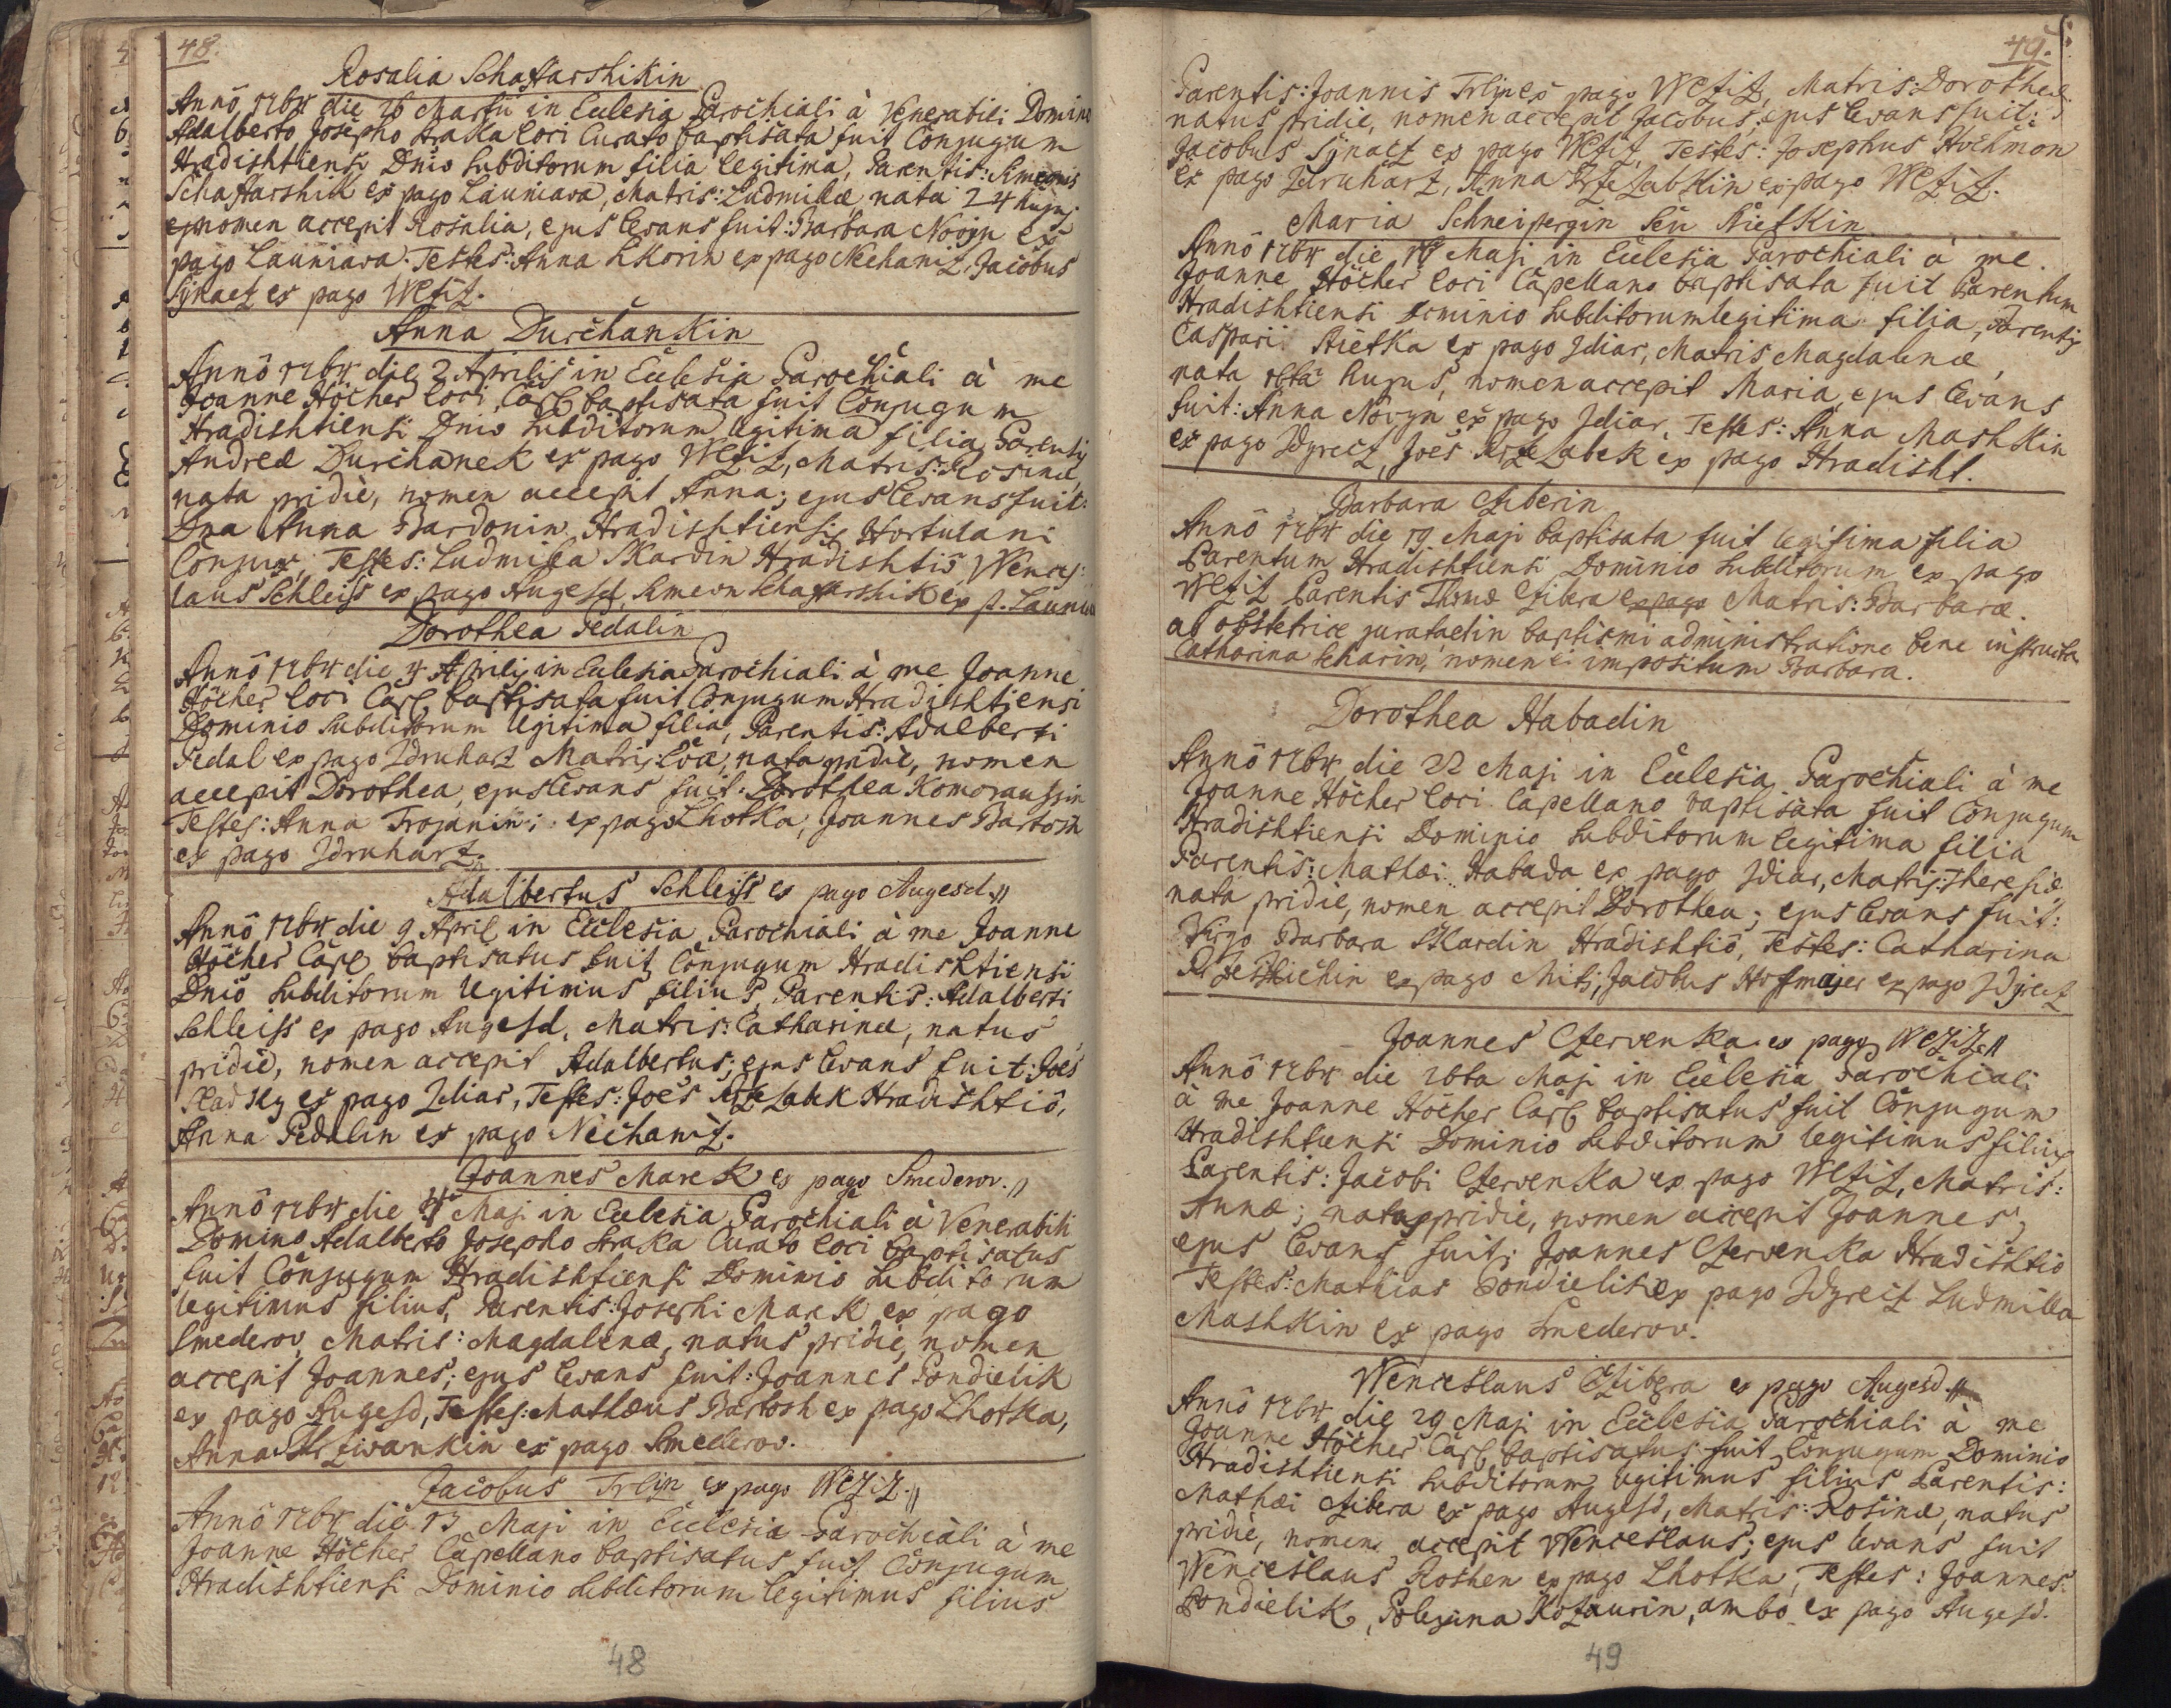 48.
Rosalia Schaffarshikin
Annô 1764 die 26 Martii in Ecclesia Parochiali à Venerabili Domino
Adalberto Josepho Straka loci Curato baptisata fuit Conjugum
Hradishtiensi Dnio subditorum filia legitima, Parentis: Simeonis
Schaffarshik ex pago Launiava, Matris: Ludmilæ, nata 24 hujus
nomen accepit Rosalia, ejus levans fuit: Barbara Novyn ex
pago Launiava. Testes: Anna Skorin ex pago Nechaniz, Jacobus
Synacz ex pago Weziz.
Anna Durchankin
Annô 1764 die 2 Aprilis in Ecclesia Parochiali à me
Joanne Höcher loci Capl baptisata fuit Conjugum
Hradishtiensi Dnio subditorum legitima filia, Parentis
Andreæ Durchanek ex pago Weziz, Matris: Rosinæ,
nata pridie, nomen accepit Anna; ejus levans fuit:
Dna Anna Bardonin Hradishtiensis Hortulani
Conjux, Testes: Ludmilla Skardin Hradishtiô, Wences:
laus Schleiss ex pago Augesd, Simeon Schaffarshik ex p. Launia
Dorothea Pedalin
Annô 1764 die 4 Aprilis in Ecclesia Parochiali à me Joanne
Höcher loci Capl baptisata fuit Conjugum Hradishtiensi
Dominio subditorum legitima filia, Parentis: Adalberti
Pedal ex pago Zdruharz Matris: Evæ, nata pridie, nomen
accepit Dorothea, ejus levans fuit: Dorothea Komorauszin
Testes: Anna Trojanin ex pago Lhotka, Joannes Bartosh
ex pago Zdruharz.
Adalbertus Schleiss ex pago Augesd.
Annô 1764 die 9 April in Ecclesia Parochiali à me Joanne
Höcher Capl baptisatus fuit Conjugum Hradishtiensi
Dniô subditorum legitimus filius, Parentis: Adalberti
Schleiss ex pago Augesd, Matris: Catharinæ, natus
pridie, nomen accepit Adalbertus; ejus levans fuit: Joes
ex pago Zdiar, Testes: Joes Rzezabek Hradishtiô,
Anna Pedalin ex pago Nechaniz.
Joannes Marek ex pago Smederov.
Annô 1764 die Maji in Ecclesia Parochiali à Venerabili
Domino Adalberto Josepho Straka Curato loci baptisatus
fuit Conjugum Hradishtiensi Dominio subditorum
legitimus filius, Parentis: Josephi Marek ex pago
Smederov, Matris: Magdalenæ, natus pridie, nomen
accepit Joannes; ejus levans fuit: Joannes Pondielik
ex pago Augesd, Testes: Mathæus Bartosh ex pago Lhotka,
Anna ex pago Smederov.
Jacobus Trlyn ex pago Weziz.
Annô 1764 die 13 Maji in Ecclesia Parochiali à me
Joanne Höcher Capellano baptisatus fuit Conjugum
Hradishtiensi Dominio subditorum legitimus filius
48
49.
Parentis: Joannis Trlyn ex pago Weziz, Matris: Dorotheæ
natus pridie, nomen accepit Jacobus; ejus levans fuit:
Jacobus Synacz ex pago Weziz, Testes: Josephus Hochmon
ex pago Zdruharz, Anna Rzezabkin ex pago Weziz.
Maria Schneipergin seu Rietkin
Annô 1764 die Maji in Ecclesia Parochiali à me
Joanne Höcher loci Capellano baptisata fuit Parentum
Hradishtiensi Dominio subditorum legitima filia, Parentis
Caspari Rietka ex pago Zdiar, Matris Magdalenæ,
nata hujus, nomen accepit Maria, ejus levans
fuit: Anna Novyn ex pago Zdiar, Testes: Anna Mashkin
ex pago Zdyrecz, Joes Rzezabek ex pago Hradisht.
Barbara Cziberin
Annô 1764 die 19 Maji baptisata fuit legitima filia
Parentum Hradishtiensi Dominio subditorum ex pago
Weziz Parentis Thomæ Czibera ex pago Matris: Barbaræ.
ab obstetrice jurata et in baptismi administratione bene instructa
Catharina Scharin, nomen ei impositum Barbara.
Dorothea Habadin
Annô 1764 die 22 Maji in Ecclesia Parochiali à me
Joanne Höcher loci Capellano baptisata fuit Conjugum
Hradishtiensi Dominio subditorum legitima filia
Parentis: Mathæi Habada ex pago Zdiar, Matris: Theresiæ
nata pridie, nomen accepit Dorothea; ejus levans fuit:
Virgo Barbara Skardin Hradishtiô, Testes: Catharina
ex pago Mitz, Jacobus Hoffmajer ex pago Zdyrecz
Joannes Czervenka ex pago Weziz.
Annô 1764 die 26ta Maji in Ecclesia Parochiali
à me Joanne Höcher Capl baptisatus fuit Conjugum
Hradishtiensi Dominio subditorum legitimus filius
Parentis: Jacobi Czervenka ex pago Weziz, Matris:
Annæ; natus pridie, nomen accepit Joannes,
ejus levans fuit: Joannes Czervenka Hradishtiô
Testes: Mathias Pondielik ex pago Zdyrecz Ludmilla
Mashkin ex pago Smederov.
Wenceslaus Czibera ex pago Augesd.
Annô 1764 die 29 Maji in Ecclesia Parochiali à me
Joanne Höcher Capl baptisatus fuit Conjugum Dominio
Hradishtiensi subditorum legitimus filius Parentis:
Mathæi Czibera ex pago Augesd, Matris: Rosinæ, natus
pridie, nomen accepit Wenceslaus; ejus levans fuit
Wenceslaus Roshen ex pago Lhotka, Testes: Joannes
Pondielik, Polexina Kozaurin, ambo ex pago Augesd.
49